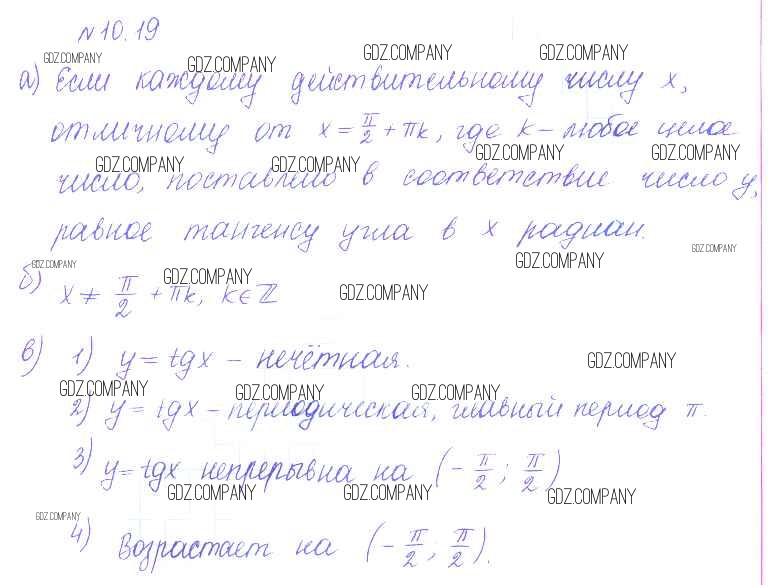 №10.19
GDZ.COMPANY GDZ.COMPANY GDZ.COMPANY GDZ.COMPANY
а) Если каждому действительному числу x,
отличному от x = π/2 + πk, где k – любое целое
GDZ.COMPANY GDZ.COMPANY GDZ.COMPANY GDZ.COMPANY
число, поставлено в соответствие число y,
равное тангенсу угла в x радиан.
GDZ.COMPANY GDZ.COMPANY GDZ.COMPANY
б) x ≠ π/2 + πk, k ∈ ℤ
GDZ.COMPANY GDZ.COMPANY
в) 1) y = tgx – нечётная.
GDZ.COMPANY GDZ.COMPANY GDZ.COMPANY GDZ.COMPANY
2) y = tgx – периодическая, главный период π.
3) y = tgx непрерывна на (-π/2; π/2)
GDZ.COMPANY GDZ.COMPANY GDZ.COMPANY
GDZ.COMPANY
4) Возрастает на (-π/2; π/2).